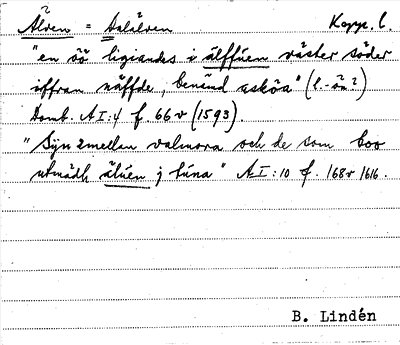 Älven = Dalälven Kopp. l.
"en öö ligiandes i älffuen väster söder
iffran näffde, benänd asköa" (l. -ön?)
Domb. A I:4 f. 66 v (1593).
"Syn emellan valmora och de som boo
utmädh älúen j túna" A I:10 f. 168 v 1616.
B. Lindén